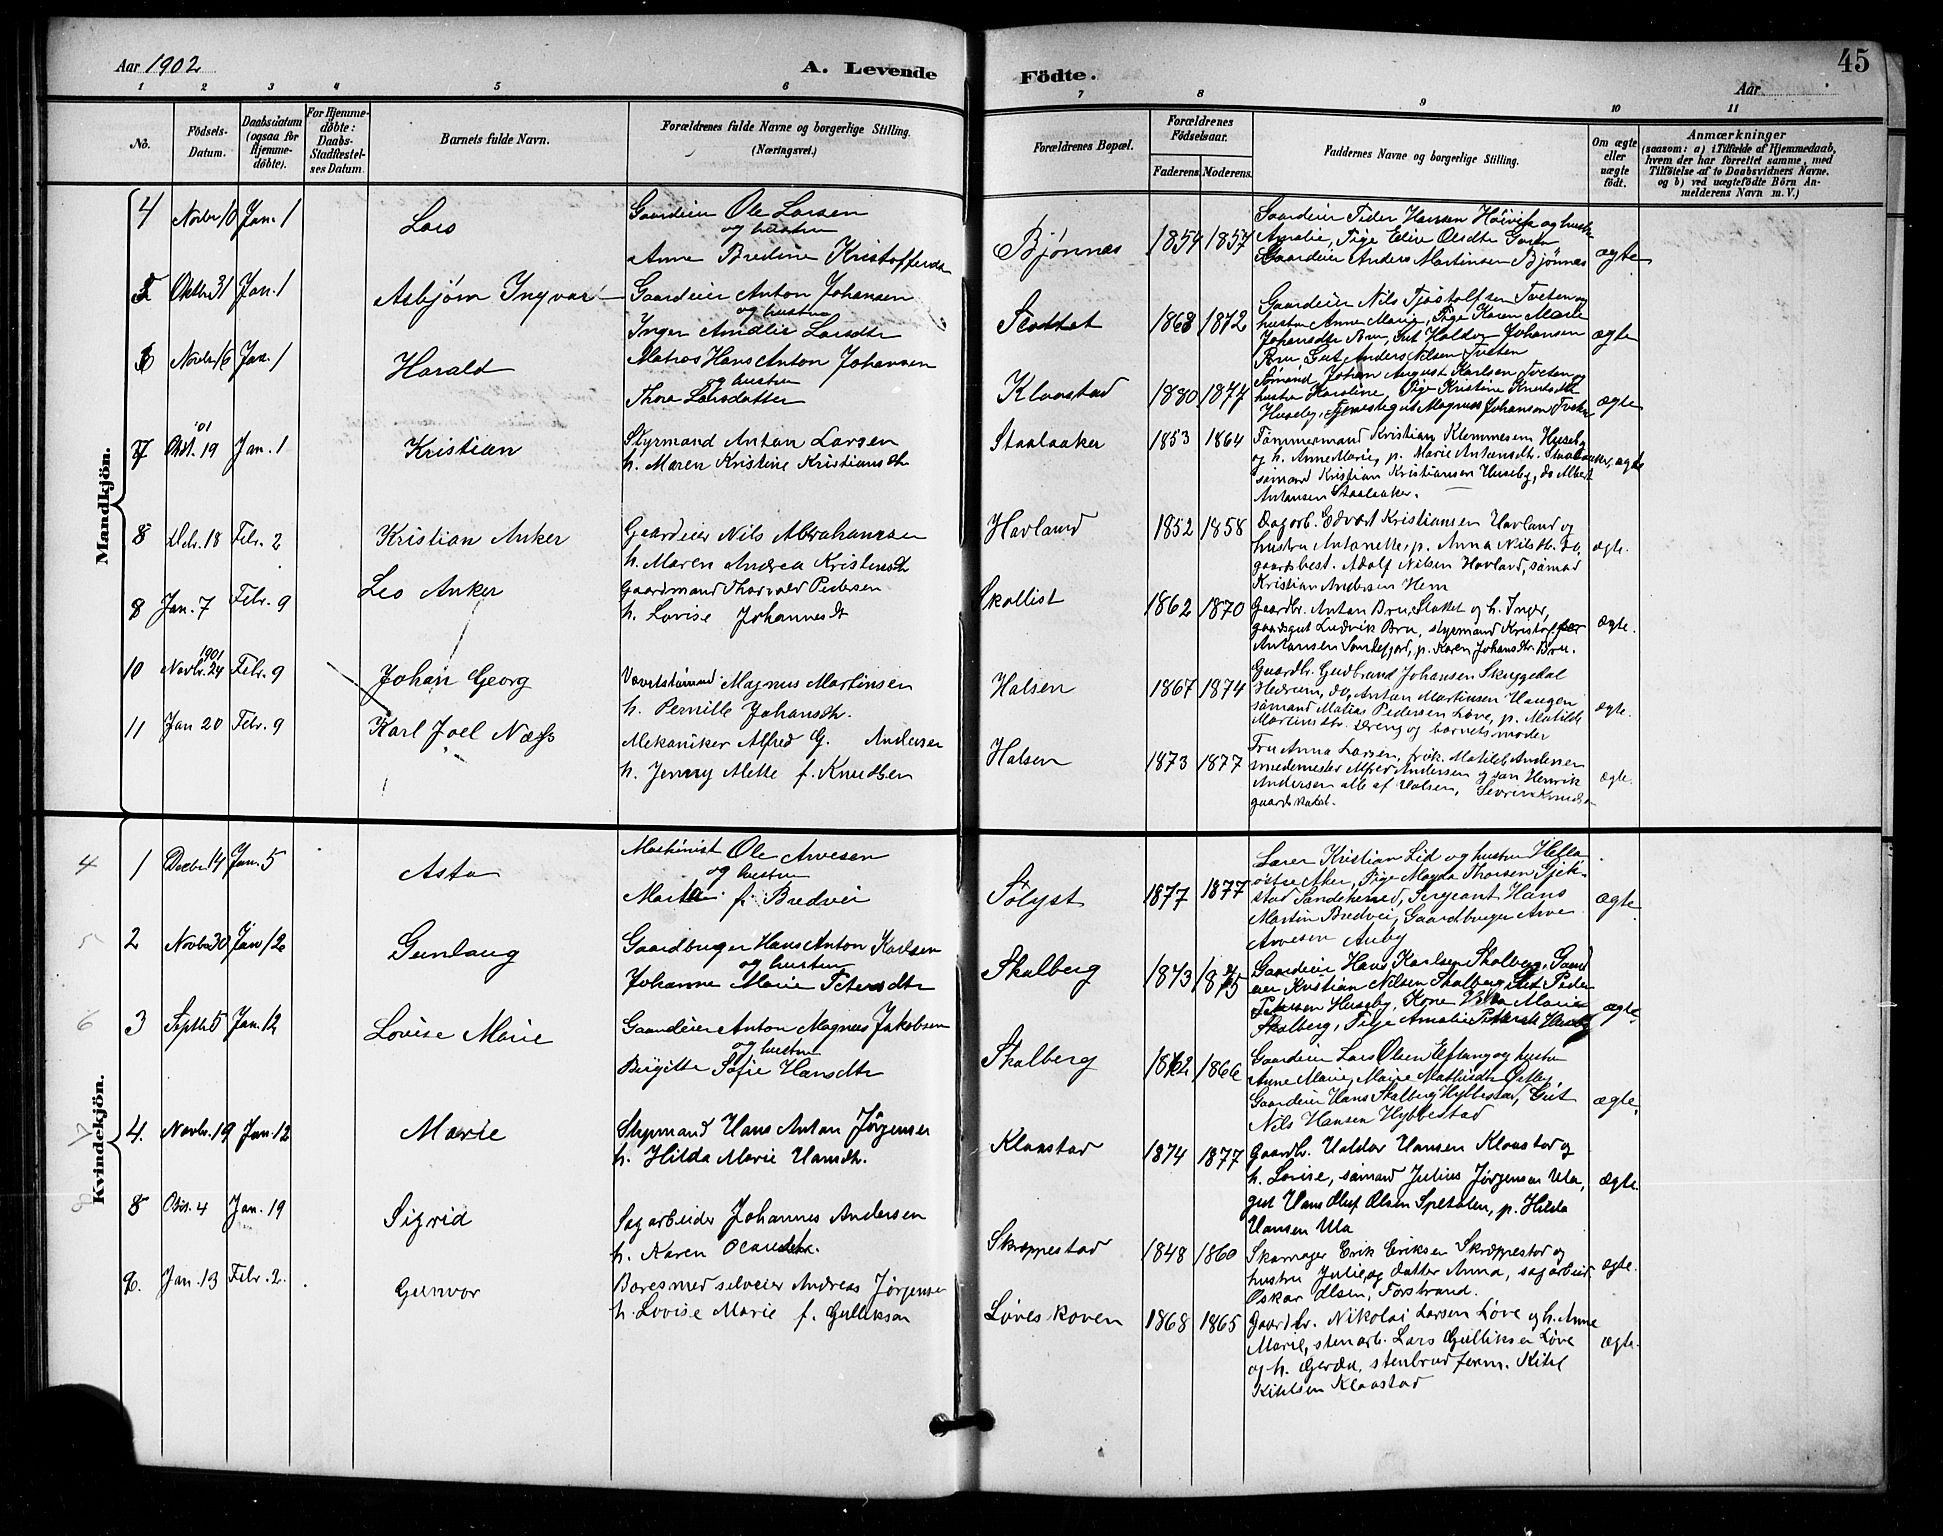 Aar 1902
A. Levende
Födte.
Aar
45
1 2 3 4 5 6 7 8 9 10 11
No.
Födsels-
Datum.
Daabsdatum
(ogsaa for
Hjemme-
döbte).
For Hjemme-
döbte:
Daabs-
Stadfæstel-
ses Datum.
Barnets fulde Navn.
Forældrenes fulde Navne og borgerlige Stilling.
(Næringsvei.)
Forældrenes Bopæl.
Forældrenes
Födselsaar.
Faderens. Moderens.
Faddernes Navne og borgerlige Stilling.
Om ægte
eller
uægte
födt.
Anmærkninger
(saasom: a) i Tilfælde af Hjemmedaab,
hvem der har forrettet samme, med
Tilföielse af to Daabsvidners Navne.
og b) ved uægtefödte Börn An-
melderens Navn m. V.)
Mandkjön.
4 Novbr 10 Jan. 1
Lars
Gaardeier Ole Larsen
og hustru
Anne Bredine Kristoffersdt
Bjønnæs
1854 1857
Gaardeier Peder Hansen og hustru
Amalie, Pige Elise Olsdtr
Gaardeier Anders Martinsen Bjønnæs
ægte
5 Oktbr 31 Jan. 1
Asbjørn Ingvar
Gaardeier Anton Johansen
og hustru
Inger Amalie Larsdtr
1868 1872
Gaardeier Nils Tjøstolfsen Tveten og
hustru Anne Marie, Pige Karen Marie
Johansdtr Bru, Gut Haldor Johansen
Bru Gut Anders Nilsen Tveten
ægte
6 Novbr 16 Jan. 1
Harald
Matros Hans Anton Johansen
og hustru
Thora Larsdatter
Klaastad
1880 1877
Sømand Johan August Karlsen Tveten og
hustru Karoline, Pige Kristine Knutsdtr
Huseby, Tjenestegut Magnus Johansen, Tveten
ægte
7 Okt. 19 '01 Jan. 1
Kristian
Styrmand Anton Larsen
h. Maren Kristine Kristiansdtr.
Staalaaker
1853 1864
Tømmermand Kristian Klemmesen Huseby
og h. Anne Marie, p. Marie Antonsdtr. Staalaaker,
sømand Kristian Kristiansen Huseby, do Albert
Antonsen Staalaaker.
ægte
8 Dcbr. 18 Febr. 2
Kristian Anker
Gaardeier Nils Abrahamsen
h. Maren Andrea Kristensdtr
Havland
1852 1858
Dagarb. Edvart Kristiansen Havland og
hustru Antonette, p. Anna Nilsdtr. do,
gaardsbest. Adolf Nilsen Havland, sømad
Kristian Andersen Hem
ægte.
8 Jan. 7 Febr. 9
Leo Anker
Gaardmand Thorvald Pedersen
h. Lovise Johannesdtr
Skallist
1862 1870
Gaardbr. Anton Bru, Slottet og h. Inger,
gaardsgut Ludvik Bru, styrmand Kristoffer
Antonsen Sandefjord, p. Karen Johansdtr. Bru.
ægte.
10 Novbr. 24 1901 Febr. 9
Johan Georg
Magnus Martinsen
h. Pernille Johansdtr.
Halsen
1867 1874
Gaardbr. Gudbrand Johansen Skyggedal
Hedrum, do, Anton Martinsen Haugen
sømand Matias Pedersen Løve, p. Matilde
Martinsdtr. Dreng og barnets moder
ægte.
11 Jan 20 Febr. 9
Karl Joel Næss
Mekaniker Alfred G. Andersen
h. Jenny Mette f. Knudsen
Halsen
1873 1877
Fru Anna Larsen, frøk. Matilde Andersen
smedemester Alfred Andersen og søn Henrik
Andersen alle af Halsen, Sevrin Knudsen
ægte.
Kvindekjön.
4 1 Decbr 14 Jan. 5
Asta
Maskinist Ole Arvesen
og hustru
Marta f. Bredvei
Sølyst
1877 1877
Lærer Kristian Lid og hustru Hella
østre Aker, Pige Magda Thorsen
Sandeherred, Sergeant Hans
Martin Bredvei, Gaardbruger Arve
Arvesen Auby
ægte
5 2 Novbr 30 Jan 12
Gunlaug
Gaardbruger Hans Anton Karlsen
og hustru
Johanne Marie Petersdtr
Skalberg
1873 1875
Gaardeier Hans Karlsen Skalberg, Gaard
eier Kristian Nilsen Skalberg, Gut Peder
Petersen Huseby, Kone Marie
Skalberg, Pige Amalie Petersdtr Huseby
ægte.
6 3 Septb 5 Jan. 12
Lovise Marie
Gaardeier Anton Magnus Jakobsen
og hustru
Birgitte Sofie Hansdtr
Skalberg
1862 1866
Gaardeier Lars Olsen Eftang og hustru
Anne Marie, Marie Mathisdtr Østby,
Gaardeier Hans Skalberg Hybbestad, Gut
Nils Hansen Hybbestad
ægte.
4. Novbr. 19 Jan. 12
Marie
Styrmand Hans Anton Jørgensen
h. Hilda Marie Hansdtr.
Klaastad
1874 1877
Gaardbr. Haldor Hansen Klaastad og
h. Lovise, sømand Julius Jørgensen Ula,
gut Hans Oluf Olsen Spetalen, p. Hilda
Hansen Ula
ægte.
8 5 Okt. 4 Jan. 19
Sigrid
Sagarbeider Johannes Andersen
h. Karen
Skræppestad
1848 1860
Skomager Erik Eriksen Skræppestad og
hustru Julie, og datter Anna, sagarbeid.
Oskar Olsen, Forstrand.
ægte.
6. Jan. 13 Febr. 2.
Gunvor
Bares med selveier Andreas Jørgensen
h. Lovise Marie f. Gulliksen
Løveskoven
1868 1865
Gaardbr. Nikolai Larsen Løve og h. Anne
Marie, stenarb. Lars Gulliksen Løve
og h. Gerda, stenbrudform. Kitil
Kitilsen Klaastad
ægte.